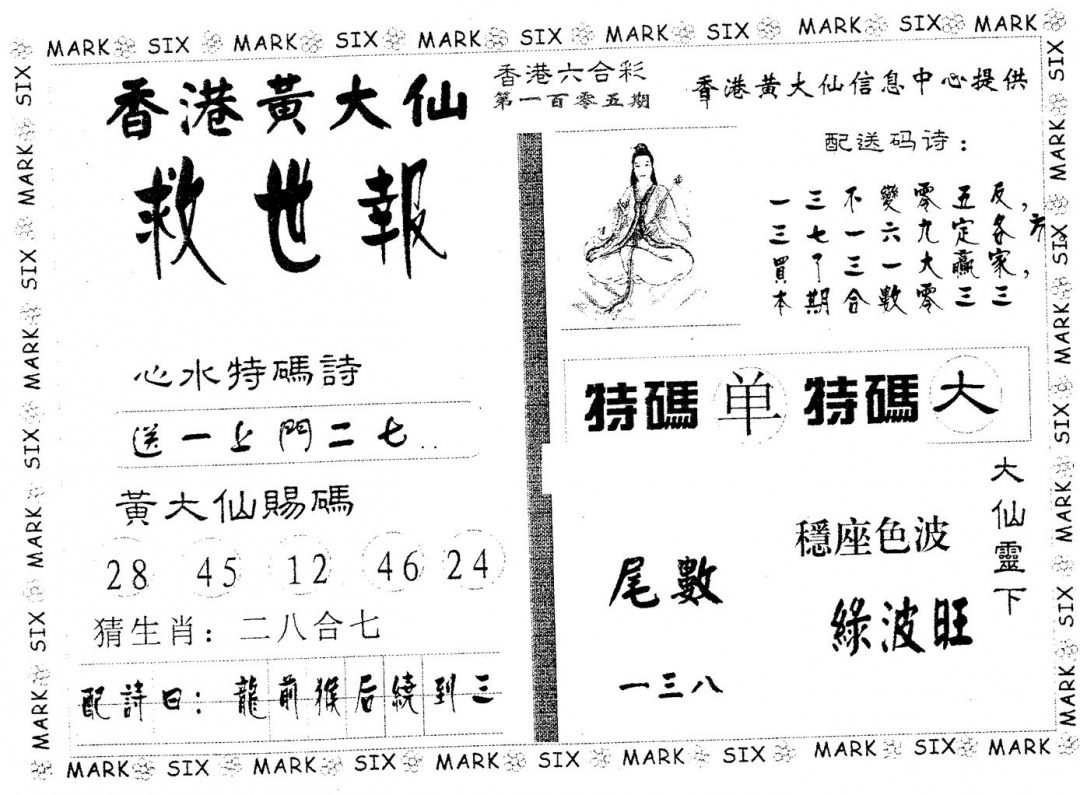 MARK SIX MARK SIX MARK SIX MARK SIX MARK SIX MARK
香港黃大仙
救世報
香港六合彩
第一百零五期
香港黄大仙信息中心提供
配送码诗：
一三不變零五反，
三七一六九定各方
買了三一大贏家，
本期合數零三三
心水特碼詩
送一上門二七..
特碼 单 特碼 大
黃大仙賜碼
28 45 12 46 24
猜生肖：二八合七
配詩曰：龍前猴后繞到三
尾數
一三八
穩座色波
綠波旺
大仙靈下
MARK SIX MARK SIX MARK SIX MARK SIX MARK SIX MARK
MARK SIX MARK SIX MARK SIX MARK SIX
MARK SIX MARK SIX MARK SIX MARK SIX